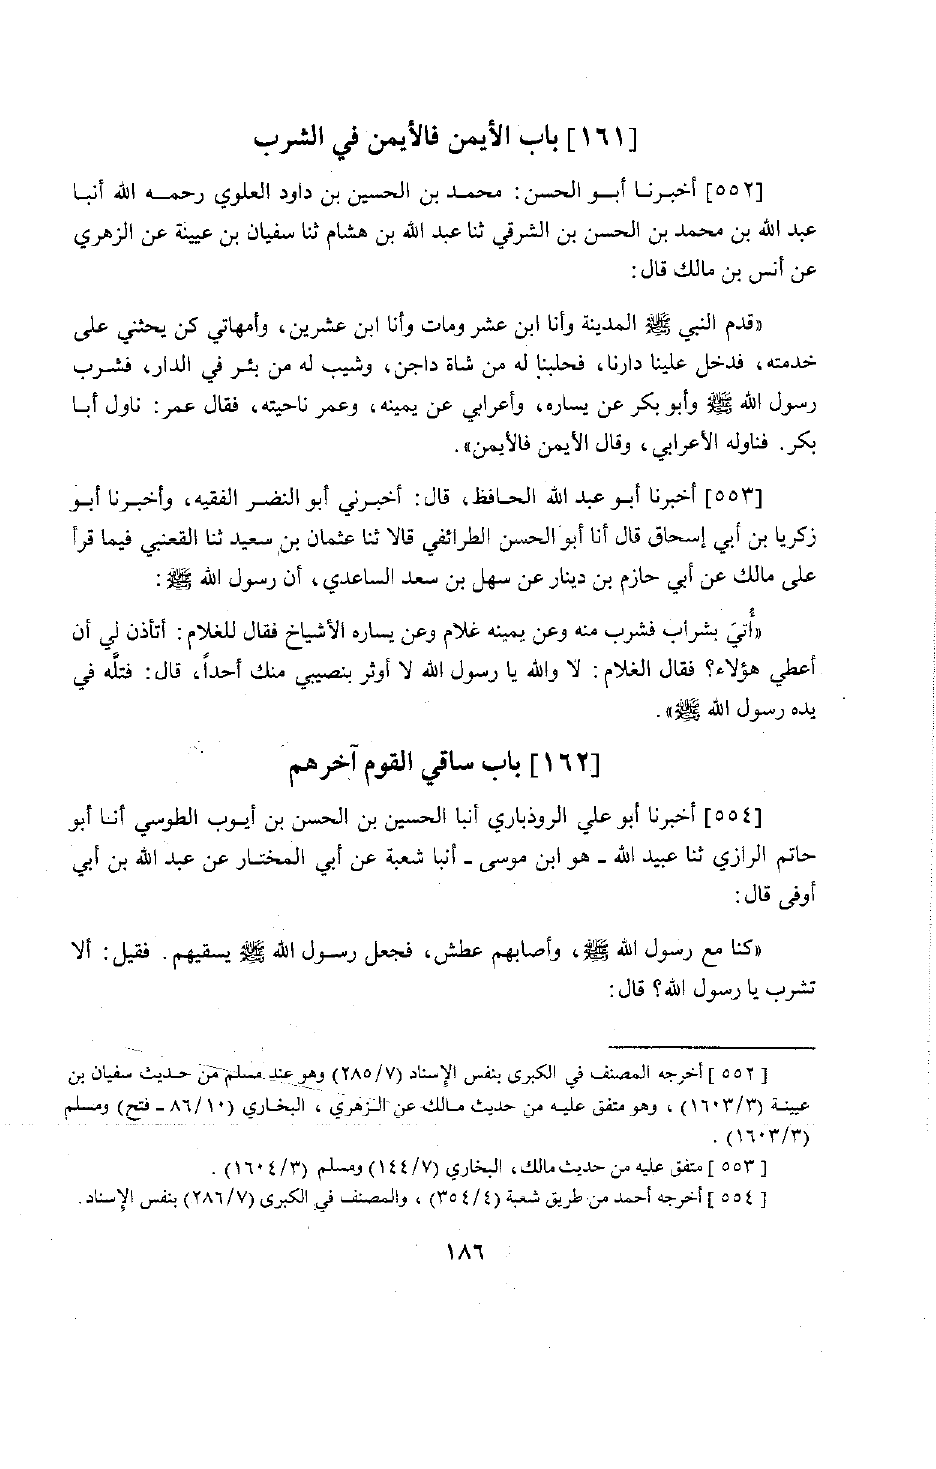 [١٦١] باب الأيمن فالأيمن في الشرب
[٥٥٢] أخبرنـا أبـو الحسن: محمـد بن الحسين بن داود العلوي رحمـه الله أنبـا
عبد الله بن محمد بن الحسن بن الشرقي ثنا عبد الله بن هشام ثنا سفيان بن عيينة عن الزهري
عن أنس بن مالك قال:
«قدم النبي ﷺ المدينة وأنا ابن عشر ومات وأنا ابن عشرين، وأمهاتي كن يحثني على
خدمته، فدخل علينا دارنا، فحلبنا له من شاة داجن، وشيب له من بئر في الدار، فشرب
رسول الله ﷺ وأبو بكر عن يساره، وأعرابي عن يمينه، وعمر ناحيته، فقال عمر: ناول أبـا
بكر. فناوله الأعرابي، وقال الأيمن فالأيمن».
[٥٥٣] أخبرنا أبـو عبد الله الحـافظ، قال: أخبـرني أبو النضـر الفقيه، وأخبـرنا أبـو
زكريا بن أبي إسحاق قال أنا أبو الحسن الطرائفي قالا ثنا عثمان بن سعيد ثنا القعنبي فيما قرأ
على مالك عن أبي حازم بن دينار عن سهل بن سعد الساعدي، أن رسول الله ﷺ:
«أُتيَ بشراب فشرب منه وعن يمينه غلام وعن يساره الأشياخ فقال للغلام: أتأذن لي أن
أعطي هؤلاء؟ فقال الغلام: لا والله يا رسول الله لا أوثر بنصيبي منك أحداً، قال: فتلَّه في
يده رسول الله ﷺ».
[١٦٢] باب ساقي القوم آخرهم
[٥٥٤] أخبرنا أبو علي الروذباري أنبا الحسين بن الحسن بن أيـوب الطوسي أنـا أبو
حاتم الرازي ثنا عبيد الله ـ هو ابن موسى ـ أنبا شعبة عن أبي المختـار عن عبد الله بن أبي
أوفى قال:
«كنا مع رسول الله ﷺ، وأصابهم عطش، فجعل رسـول الله ﷺ يسقيهم. فقيل: ألا
تشرب يا رسول الله؟ قال:
[٥٥٢] أخرجه المصنف في الكبرى بنفس الإسناد (٢٨٥/٧) وهو عند مسلم من حديث سفيان بن
عيينـة (١٦٠٣/٣)، وهو متفق عليـه من حديث مـالك عن الـزهري، البخاري (٨٦/١٠ ـ فتح) ومسلم
(١٦٠٣/٣).
[٥٥٣] متفق عليه من حديث مالك، البخاري (١٤٤/٧) ومسلم (١٦٠٤/٣).
[٥٥٤] أخرجه أحمد من طريق شعبة (٣٥٤/٤)، والمصنف في الكبرى (٢٨٦/٧) بنفس الإسناد.
١٨٦